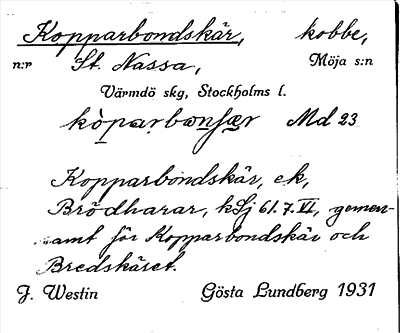 Kopparbondskär, kobbe,
n:r St. Nassa, Möja s:n
Värmdö skg, Stockholms l.
Md 23
Kopparbondskär, ek,
Brödharar, kSj 61.7.VI, gemen-
samt för Kopparbondskär och
Bredskäret.
J. Westin Gösta Lundberg 1931